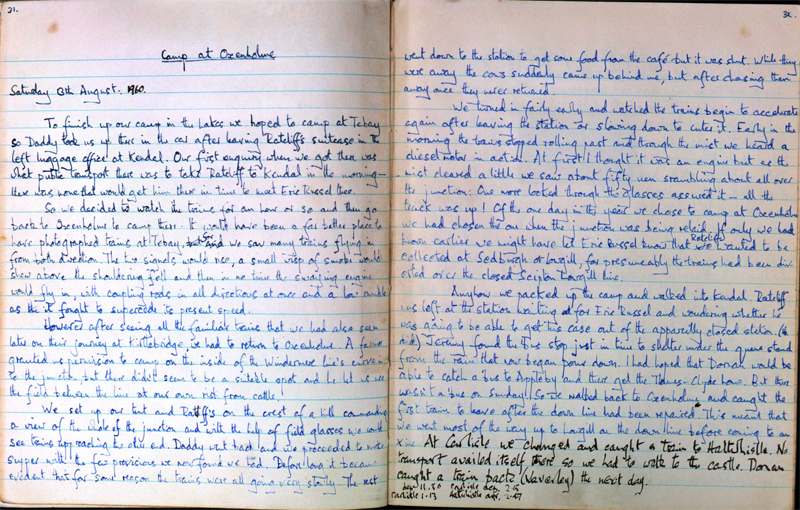 31.
Camp at Oxenholme
Saturday 13th August. 1960.
To finish up our camp in the Lakes we hoped to camp at Tebay
so Daddy took us up there in the car after leaving Ratcliff's suitcase in the
left luggage office at Kendal. Our first enquiry when we got there was
what public transport there was to take Ratcliff to Kendal in the morning -
there was none that would get him there in time to meet Eric Russel there.
So we decided to watch the trains for an hour or so and then go
back to Oxenholme to camp there. It would have been a far better place to
have photographed trains at Tebay, and we saw many trains flying in
from both direction. The two signals would rise, a small wisp of smoke would
show above the shouldering fell and then in no time the swaying engine
would fly in, with coupling rods in all directions at once and a low rumble
as it fought to supercede its present speed.
However after seeing all the familiar trains that we had also seen
later on their journey at we had to return to Oxenholme. A farmer
granted us permission to camp on the inside of the Windermere line's curve in
to the junction, but there didn't seem to be a suitable spot and he let us use
the field between the line at our own risk from cattle!
We set up our tent and Ratcliff's on the crest of a hill commanding
a view of the whole of the junction and with the help of field glasses we could
see trains approaching the other end. Daddy went back and we proceeded to make
supper with the few provisions we now found we had. Before long it became
evident that for some reason the trains were all going very slowly. The rest
32.
went down to the station to get some food from the café but it was shut. While they
were away the cows suddenly came up behind me, but after chasing them
away once they were returned.
We turned in fairly early and watched the trains begin to accelerate
again after leaving the station or slowing down to enter it. Early in the
morning the trains stopped rolling past and through the mist we heard a
diesel motor in action. At first I thought it was an engine but as the
mist cleared a little we saw about fifty men scrambling about all over
the junction. One more looked through the glasses assured it - all the
track was up! Of the one day in the year we chose to camp at Oxenholme
we had chosen the one when the junction was being relaid. If only we had
known earlier we might have let Eric Russel know that Ratcliff wanted to be
collected at Sedburgh or Lowgill, for presumeably the trains had been div-
erted over the closed Lowgill line.
Anyhow we packed up the camp and walked into Kendal. Ratcliff
was left at the station waiting for Eric Russel and wondering whether he
was going to be able to get his case out of the apparently closed station. (he
did). Jeremy found the bus stop just in time to shelter under the queue stand
from the rain that now began pour down. I had hoped that Dorian would be
able to catch a bus to Appleby and there get the Thames-Clyde home. But there
wasn't a bus on Sunday! So we walked back to Oxenholme and caught the
first train to leave after the down line had been repaired. This meant that
we went most of the way up to Lowgill on the down line before coming to an
At Carlisle we changed and caught a train to Haltwhistle. No
transport availed itself there so we had to walk to the castle. Dorian
caught a train back (Waverley) the next day.
11.50 Carlisle dep. 2.15
Carlisle 1.13 Haltwhistle arr. 2.57